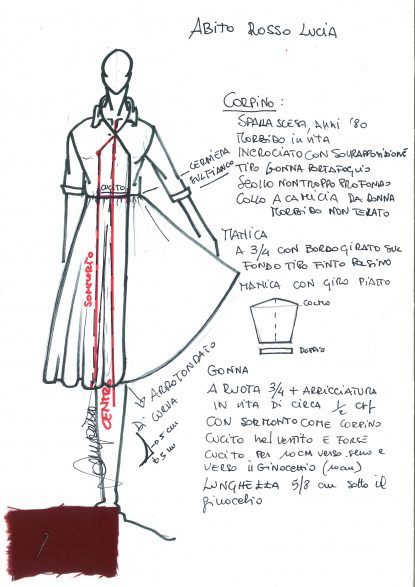 ABITO ROSSO LUCIA
CORPINO:
SPALLA SCESA, ANNI '80
MORBIDO IN VITA
INCROCIATO CON SOVRAPPOSIZIONE
TIPO GONNA PORTAFOGLIO
SCOLLO NON TROPPO PROFONDO
COLLO A CAMICIA DA DONNA
MORBIDO NON TERATO
CERNIERA
SUL FIANCO
CUCITO
MANICA
A 3/4 CON BORDO GIRATO SUL
FONDO TIPO FINTO POLSINO
MANICA CON GIRO PIATTO
COLMO
DOPPIO
SORMONTO
CENTRO
ARROTONDATO
DI CURVA
0.5 cm
GONNA
A RUOTA 3/4 + ARRICCIATURA
IN VITA DI CIRCA 1/2 CM
CON SORMONTO COME CORPINO
CUCITO NEL VENTITO E FORSE
CUCITO PER 10 CM VERSO SENO E
VERSO IL GINOCCHIO (10cm)
LUNGHEZZA 5/8 cm SOTTO IL
GINOCCHIO